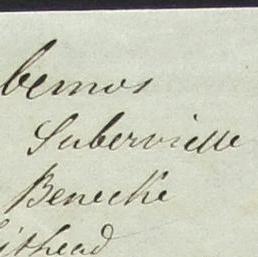 bemos
Suberville
Benecke
ithead